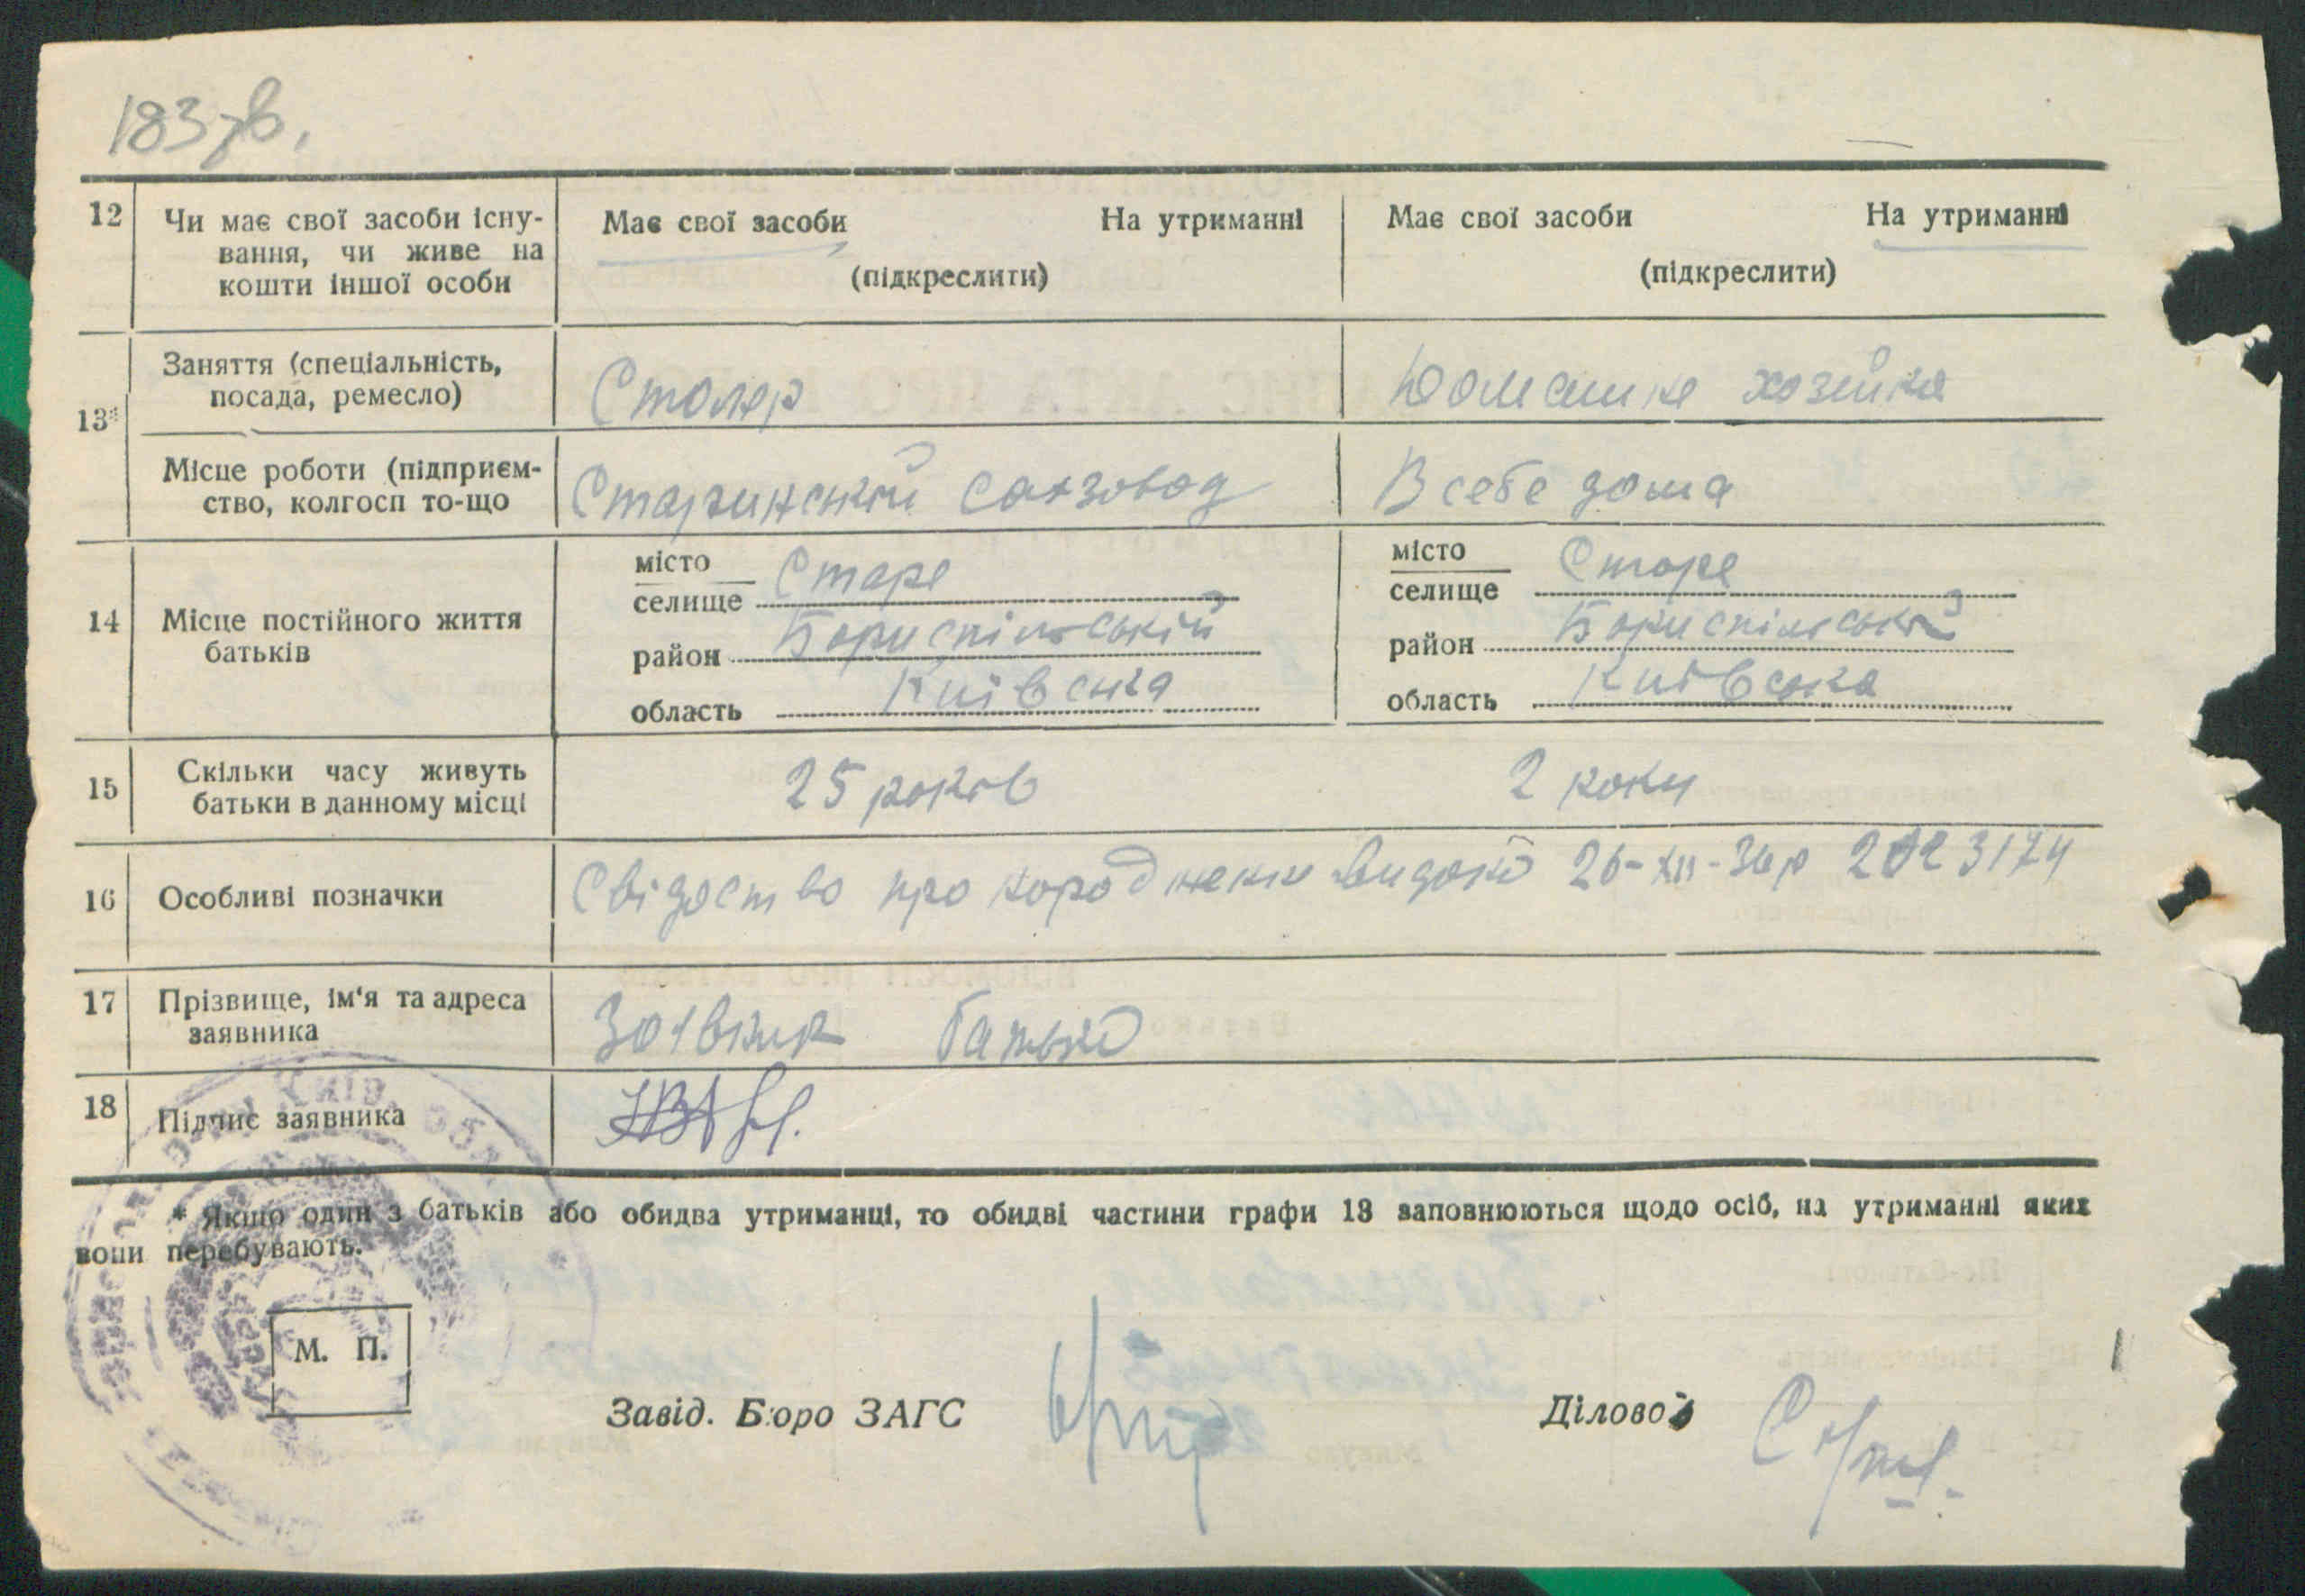 183 зв.
12 Чи має свої засоби існу- Має свої засоби На утриманні Має свої засоби На утриманні
вання, чи живе на (підкреслити) (підкреслити)
кошти іншої особи
13* Заняття (спеціальність, Столяр Домашня хозяйка
посада, ремесло)
Місце роботи (підприєм- Старинській Сахзавод В себе дома
ство, колгосп то-що
14 Місце постійного життя батьків
місто селище Старе місто селище Старе
район Бориспільській район Бориспільській
область Київська область Київська
15 Скільки часу живуть 25 років 2 роки
батьки в данному місці
16 Особливі позначки Свідоство про народження видано 26-XII-36р
17 Прізвище, ім'я та адреса Заявник батько
заявника
18 Підпис заявника
* Якщо один з батьків або обидва утриманці, то обидві частини графи 13 заповнюються щодо осіб, на утриманні яких
вони перебувають.
М. П.
Завід. Бюро ЗАГС Діловод